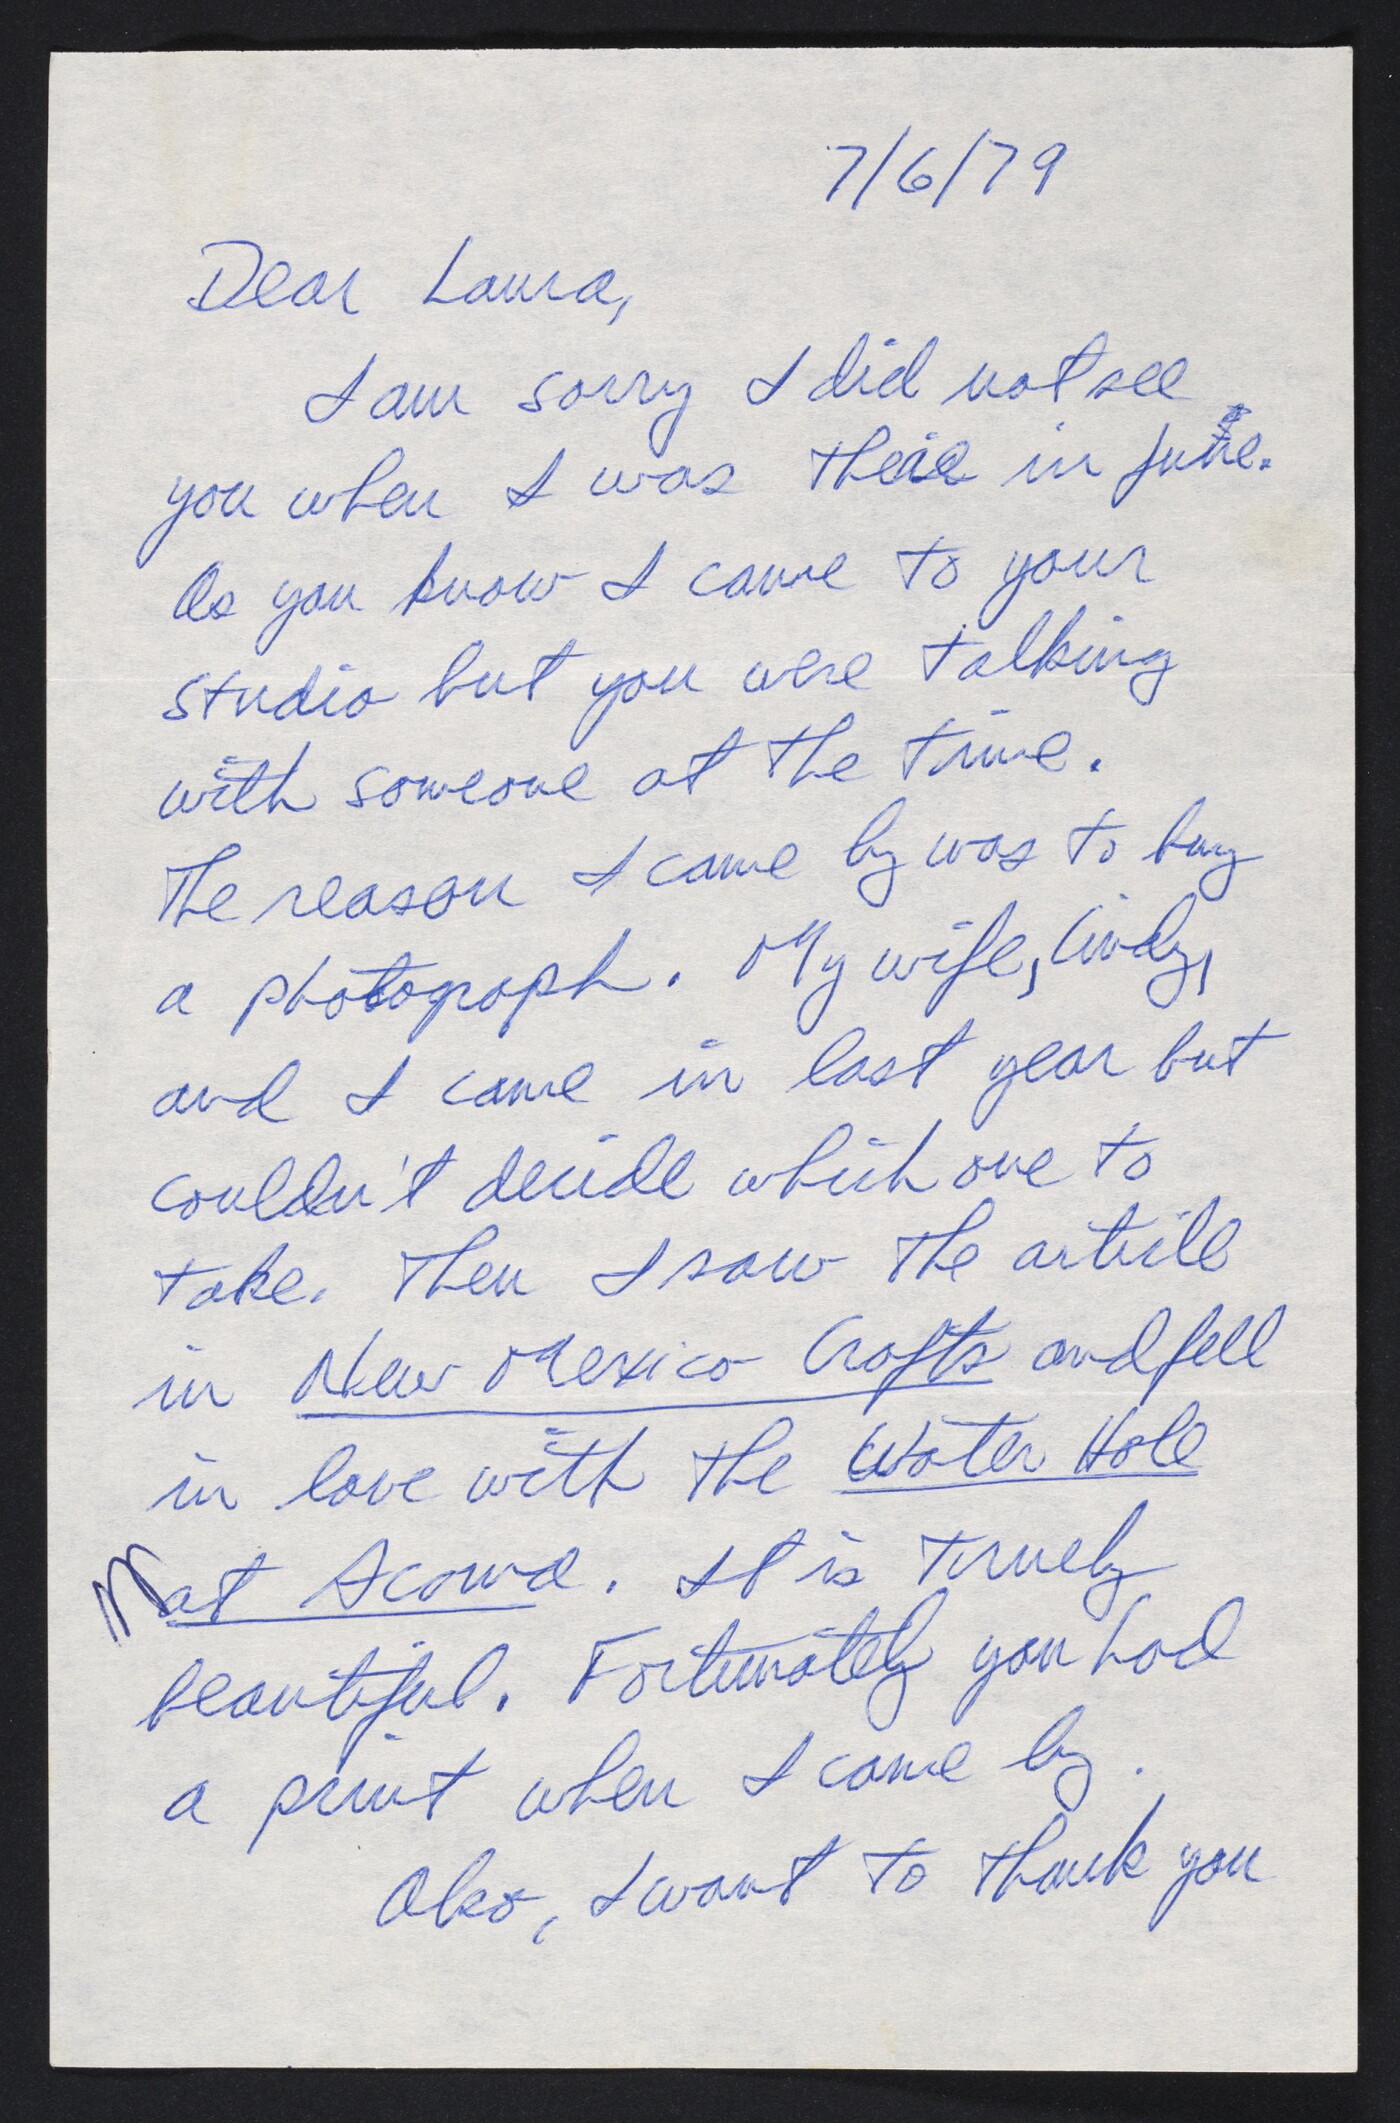 7/6/79
Dear Laura,
I am sorry I did not see
you when I was there in June.
As you know I came to your
studio but you were talking
with someone at the time.
The reason I came by was to buy
a photograph. My wife, Cindy,
and I came in last year but
couldn't decide which one to
take. Then I saw the article
in New Mexico Crafts and fell
in love with the Water Hole
at Acoma. It is truely
beautiful. Fortunately you had
a print when I came by.
Also, I want to thank you